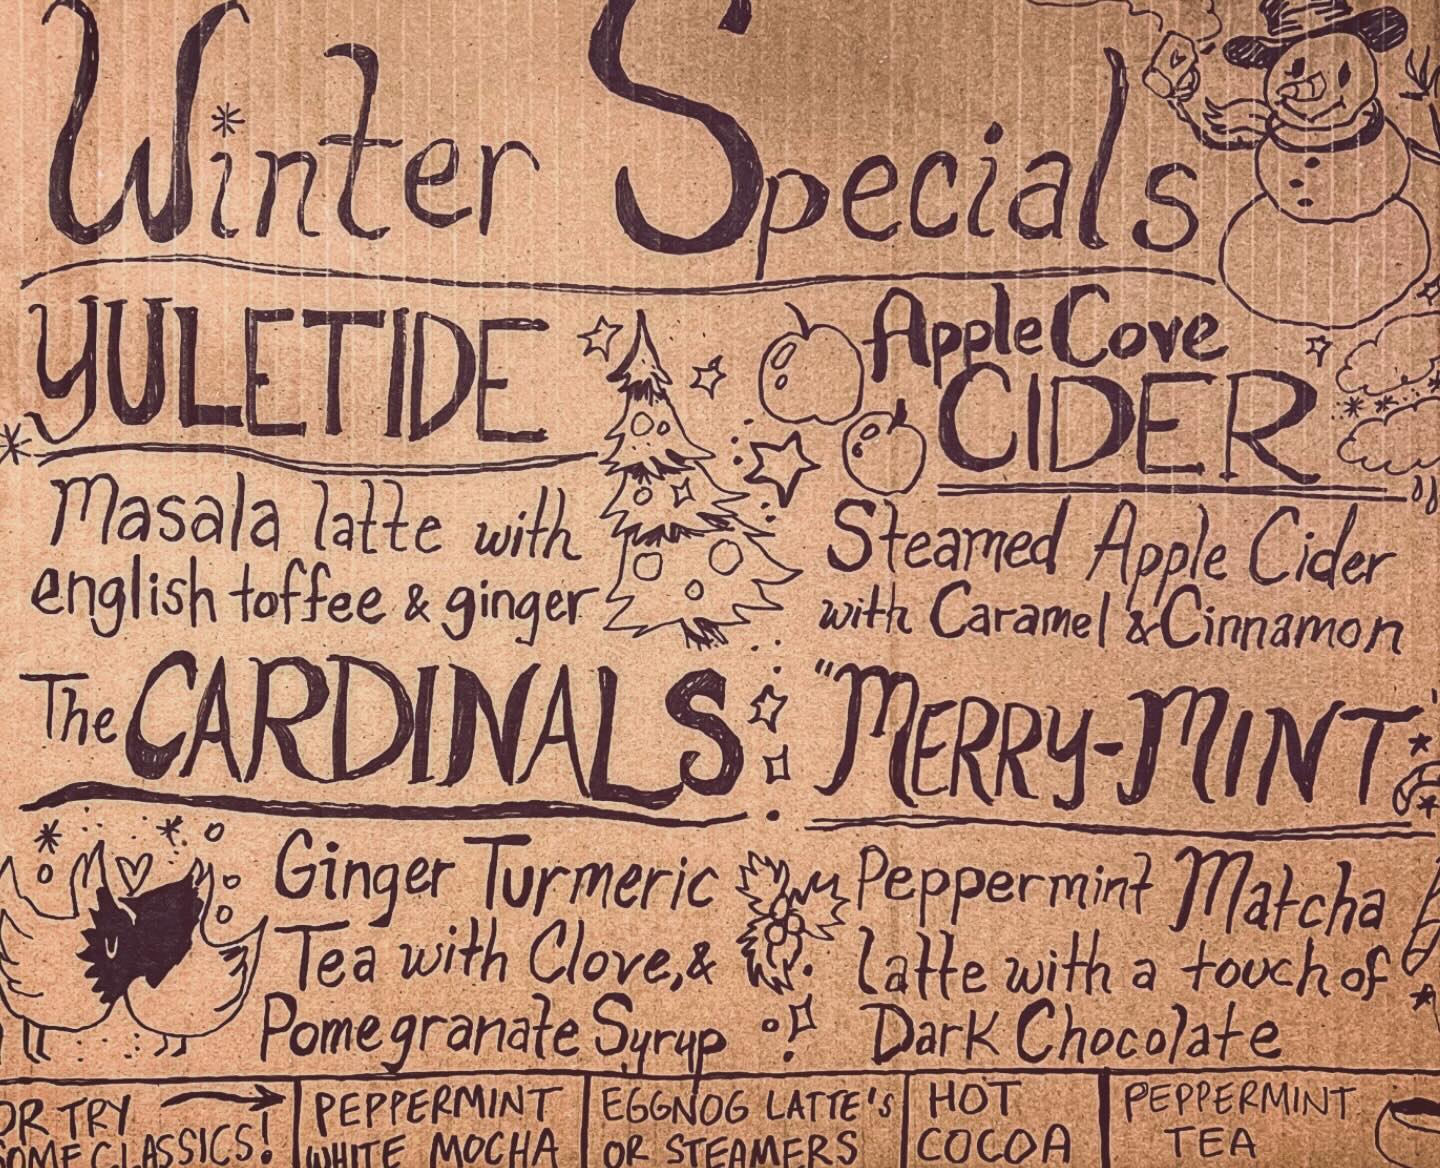 Winter Specials
YULETIDE
Masala latte with
english toffee & ginger
Apple Cove
CIDER
Steamed Apple Cider
with Caramel & Cinnamon
The CARDINALS
Ginger Turmeric
Tea with Clove, &
Pomegranate Syrup
"MERRY-MINT"
Peppermint Matcha
Latte with a touch of
Dark Chocolate
OR TRY
SOME CLASSICS!
PEPPERMINT
WHITE MOCHA
EGGNOG LATTE'S
OR STEAMERS
HOT
COCOA
PEPPERMINT
TEA